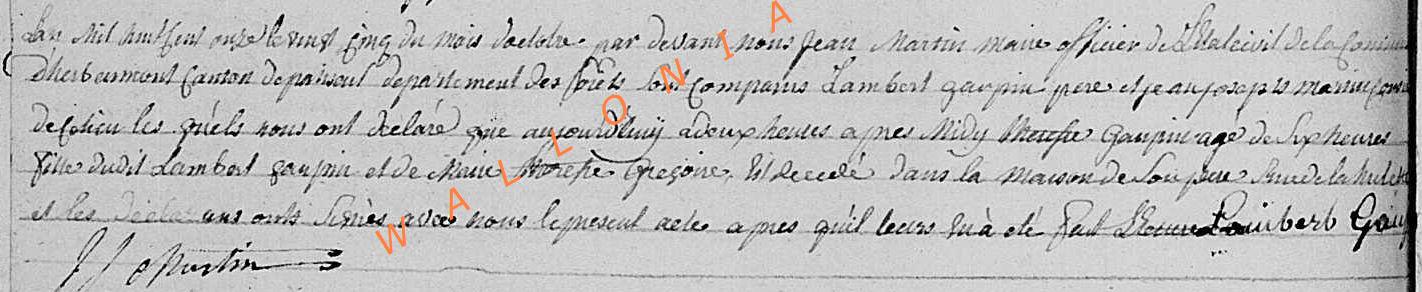 Lan Mil huit Cent onze le vingt Cinq du mois d'octobre par devant nous Jean Martin maire officier de L'Etat civil de la Commune
d'herbeumont Canton de paliseul departement des forêts sont Comparus Lambert gaupin pere et jean joseph martin
de ce lieu les quels nous ont declaré que aujourd'huy a deux heures apres Midy gaupin agé de Six heures
fille dudit Lambert gaupin et de Marie gregoire, Est decedé dans la maison de Son pere Rue de la
et les declarans onts Signés avec nous le present acte apres qu'il leurs en à eté fait Lecture Lambert Gaup
J J Martin
WALLONIA